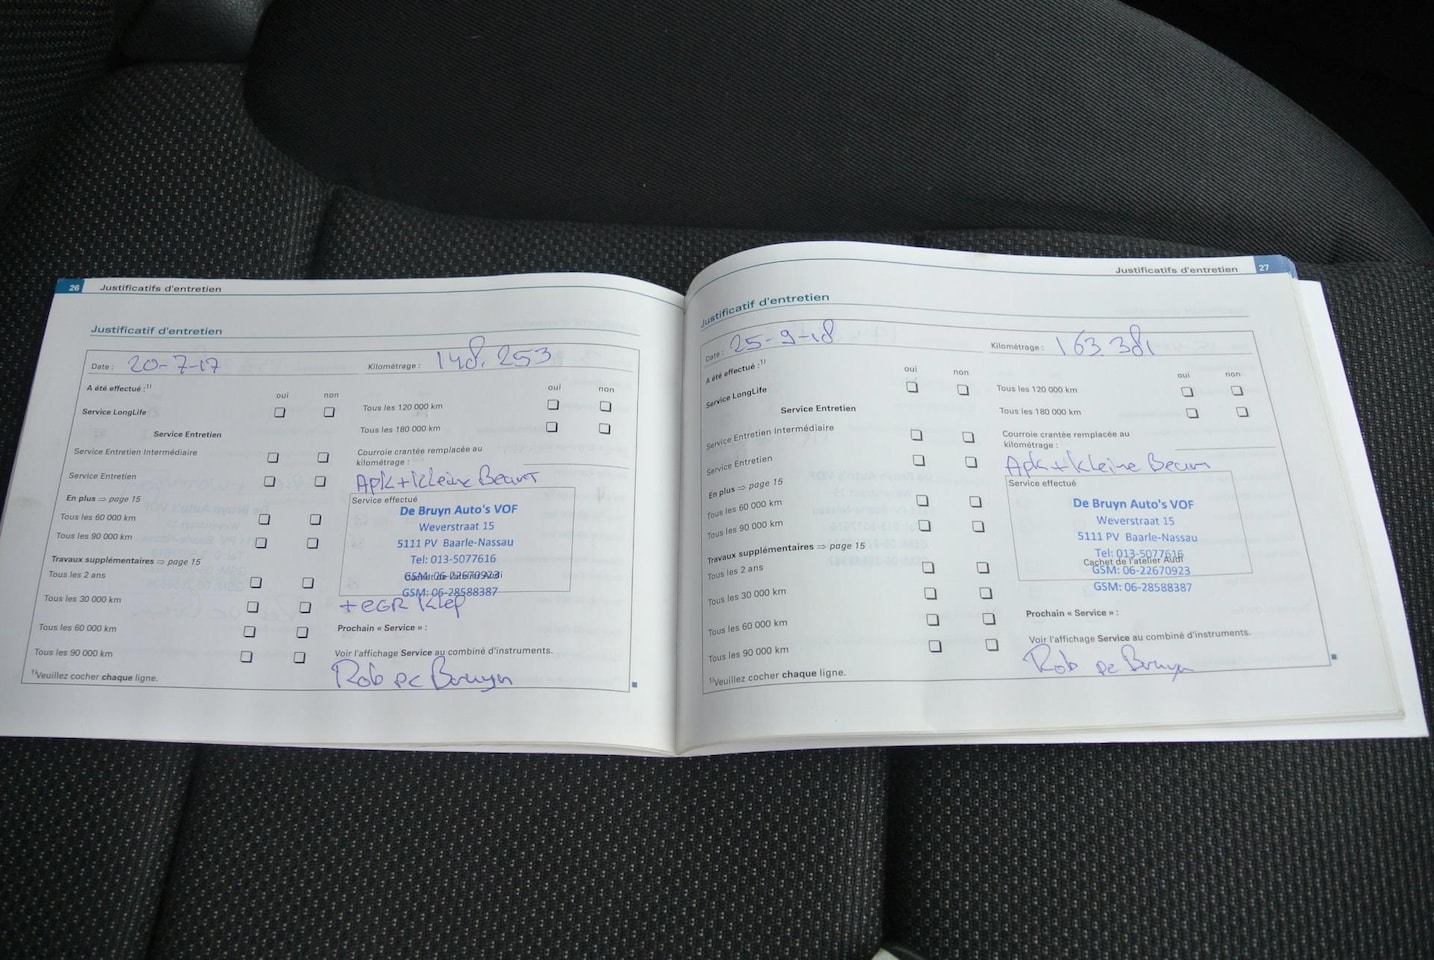 26 Justificatifs d'entretien
Justificatif d'entretien
Date : 20-7-17 Kilométrage : 148.253
A été effectué :¹⁾
oui non
oui non
Service LongLife
Tous les 120 000 km
Service Entretien
Tous les 180 000 km
Service Entretien Intermédiaire
Courroie crantée remplacée au
kilométrage :
Service Entretien
Apk+kleine Beurt
En plus ⇒ page 15
Service effectué
Tous les 60 000 km
De Bruyn Auto's VOF
Weverstraat 15
Tous les 90 000 km
5111 PV Baarle-Nassau
Travaux supplémentaires ⇒ page 15
Tel: 013-5077616
Tous les 2 ans
GSM: 06-22670923
GSM: 06-28588387
Tous les 30 000 km
+ EGR Klep
Tous les 60 000 km
Prochain « Service » :
Tous les 90 000 km
Voir l'affichage Service au combiné d'instruments.
¹⁾Veuillez cocher chaque ligne.
Rob de Bruyn
Justificatifs d'entretien 27
Justificatif d'entretien
Date : 25-9-18 Kilométrage : 163.381
A été effectué :¹⁾
oui non
oui non
Service LongLife
Tous les 120 000 km
Service Entretien
Tous les 180 000 km
Service Entretien Intermédiaire
Courroie crantée remplacée au
kilométrage :
Service Entretien
Apk+kleine Beurt
En plus ⇒ page 15
Service effectué
Tous les 60 000 km
De Bruyn Auto's VOF
Weverstraat 15
Tous les 90 000 km
5111 PV Baarle-Nassau
Travaux supplémentaires ⇒ page 15
Tel: 013-5077616
Cachet de l'atelier Audi
Tous les 2 ans
GSM: 06-22670923
GSM: 06-28588387
Tous les 30 000 km
Prochain « Service » :
Tous les 60 000 km
Voir l'affichage Service au combiné d'instruments.
Tous les 90 000 km
Rob de Bruyn
¹⁾Veuillez cocher chaque ligne.